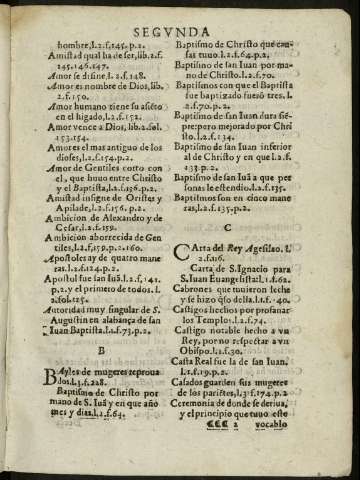 SEGVNDA
hombre, l.2.f.145.p.2.
Amistad qual ha de ser, lib.2.f.
145.146.147.
Amor se difine. l.2.f.148.
Amor es nombre de Dios, lib.
2.f.150.
Amor humano tiene su asiēto
en el higado, l.2.f.152.
Amor vence a Dios, lib.2.fol.
153.154.
Amor es el mas antiguo de los
dioses, l.2.f.154.p.2.
Amor de Gentiles corto con
el, que huuo entre Christo
y el Baptista, l.2.f.156.p.2.
Amistad insigne de Oristes y
Apilade, l.2.f.156.p.2.
Ambicion de Alexandro y de
Cesar, l.2.f.159.
Ambicion aborrecida de Gen
tiles, l.2.f.159.p.2.160.
Apostoles ay de quatro mane
ras. l.2.f.124.p.2.
Apostol fue san Iuā. l.2.f.141.
p.2. y el primero de todos. l.
2.fol.125.
Autoridad muy singular de S.
Augustin en alabança de san
Iuan Baptista. l.1.f.73.p.2.
B
BAyles de mugeres reproua
dos. l.3.f.228.
Baptismo de Christo por
mano de S. Iuā y en que año
mes y dias. l.2.f.64.
Baptismo de Christo que cau-
sas tuuo. l.2.f.64.p.2.
Baptismo de san Iuan por ma-
no de Christo. l.2.f.70.
Baptismos con que el Baptista
fue baptizado fuerō tres. l.
2.f.70.p.2.
Baptismo de san Iuan dura siē-
pre: pero mejorado por Chri
sto. l.2.f.134.
Baptismo de san Iuan inferior
al de Christo y en que l.2.f.
133.p.2.
Baptismo de san Iuā a que per
sonas se estendio. l.2.f.135.
Baptismos son en cinco mane
ras, l.2.f.135.p.2.
C
CArta del Rey Agesilao. l.
2.f.116.
Carta de S. Ignacio para
S. Iuan Euangelista: l.1.f.62.
Cabrones que tuuieron leche
y se hizo q̄so della. l.1.f.40.
Castigos hechos por profanar
los Templo. l.2.f.74.
Castigo notable hecho a vn
Rey, por no respectar a vn
Obispo. l.2.f.30.
Casta Real fue la de san Iuan.
l.1.f.19.p.2.
Casados guarden sus mugeres
de los pariētes, l.3.f.174.p.2
Ceremonia de donde se deriua,
y el principio que tuuo este
CCC 2 vocablo